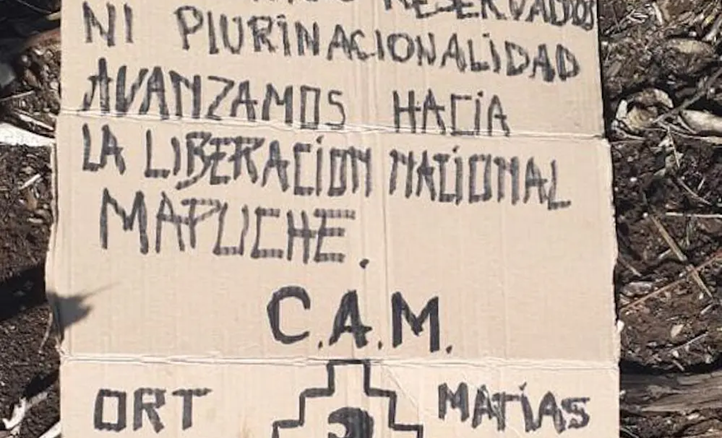 RESERVADOS
NI PLURINACIONALIDAD
AVANZAMOS HACIA
LA LIBERACIÓN NACIONAL
MAPUCHE.
C.A.M.
ORT MATÍAS